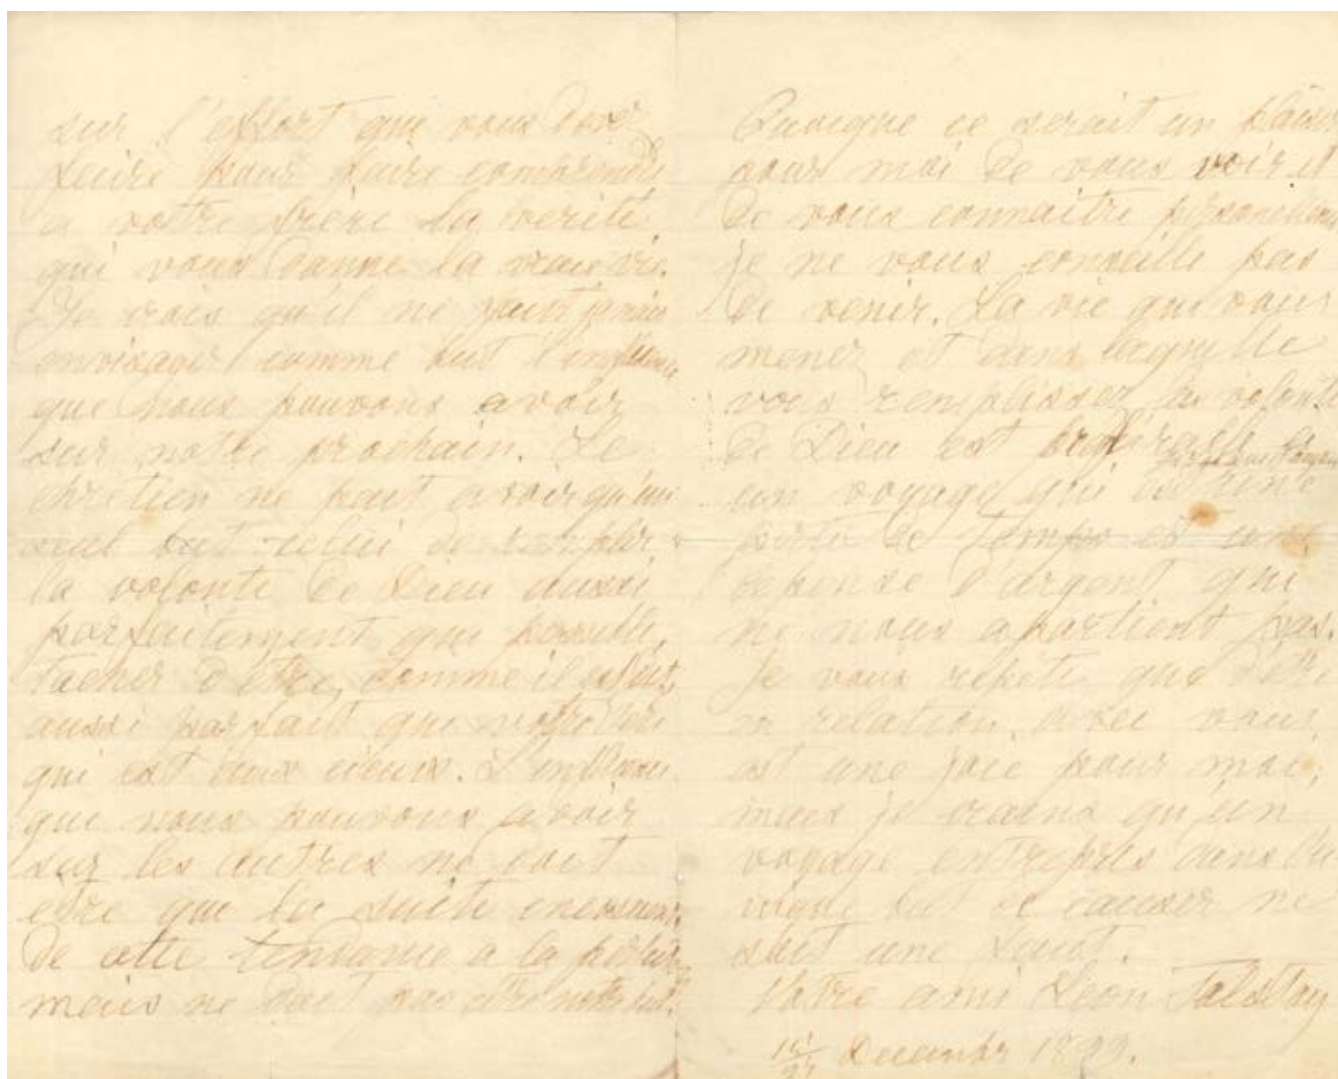 sur l'effort que vous devez
faire pour faire comprendre
a votre frere la verité
qui vous donne la vraie vie.
Je crois qu'il ne faut jamais
envisager comme but l'influence
que nous pouvons avoir
sur notre prochain. Le
chretien ne peut avoir qu'un
seul but celui de remplir
la volonté de Dieu aussi
parfaitement que possible,
tacher d'etre, comme il est dit,
aussi parfait que notre Père
qui est aux cieux. L'influence
que nous pouvons avoir
sur les autres ne doit
etre que la suite
de cette tendance a la
mais ne doit pas etre notre but.
Quoique ce serait un plaisir
pour moi de vous voir et
de vous connaitre personellem,
je ne vous conseille pas
de venir. La vie que vous
menez et dans laquelle
vous remplissez la volonté
de Dieu est
un voyage qui est une
perte de temps et une
depense d'argent qui
ne nous apartient pas.
Je vous repete que d'etre
en relation avec vous
est une joie pour moi,
mais je crains qu'un
voyage entrepris dans l'u
nique but de causer ne
soit une faute.
Votre ami Léon Tolstoy
Decembre 1899.